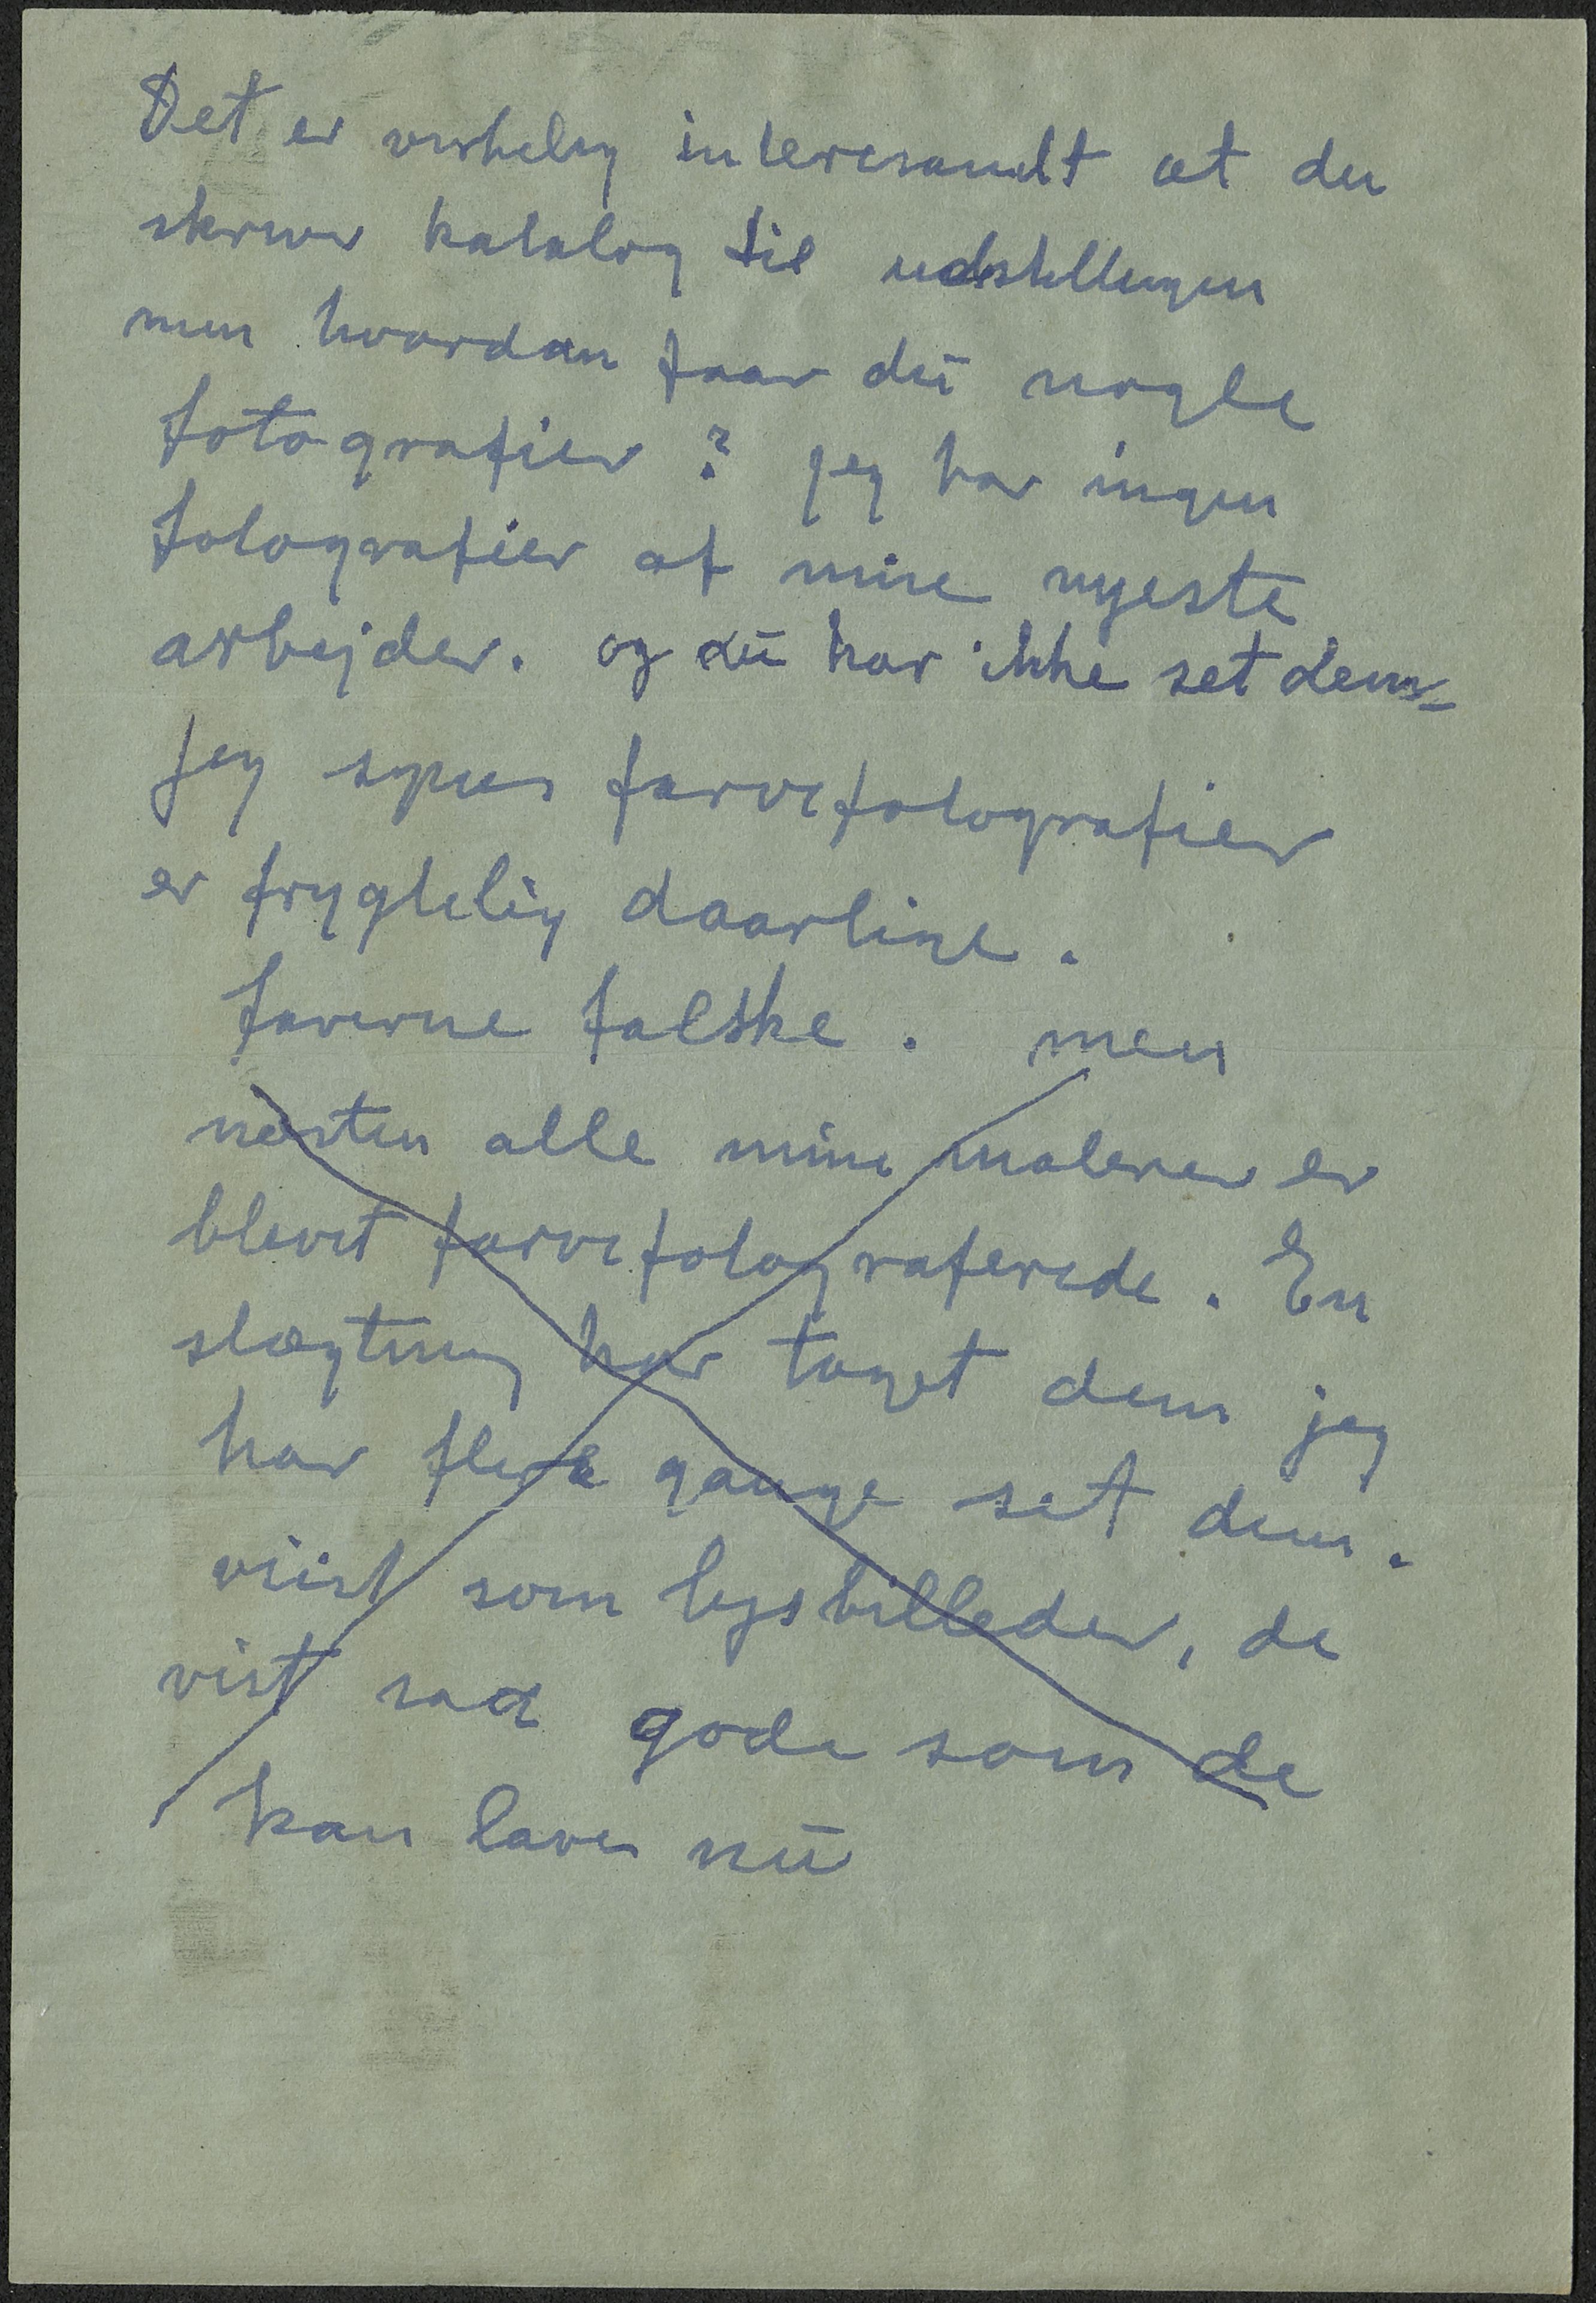 Det er virkelig interesandt at du
skriver katalog til udstillingen
men hvordan faar du nogle
fotografier? jeg har ingen
fotografier af mine nyeste
arbejder. og du har ikke set dem
Jeg synes farvefotografier
er frygtelig daarlige.
farverne falske. men
næsten alle mine malerier er
blevet farvefotograferede. En
slægtning har taget dem jeg
har flere gange set dem.
viist som lysbilleder, de
vist saa gode som de
kan laves nu